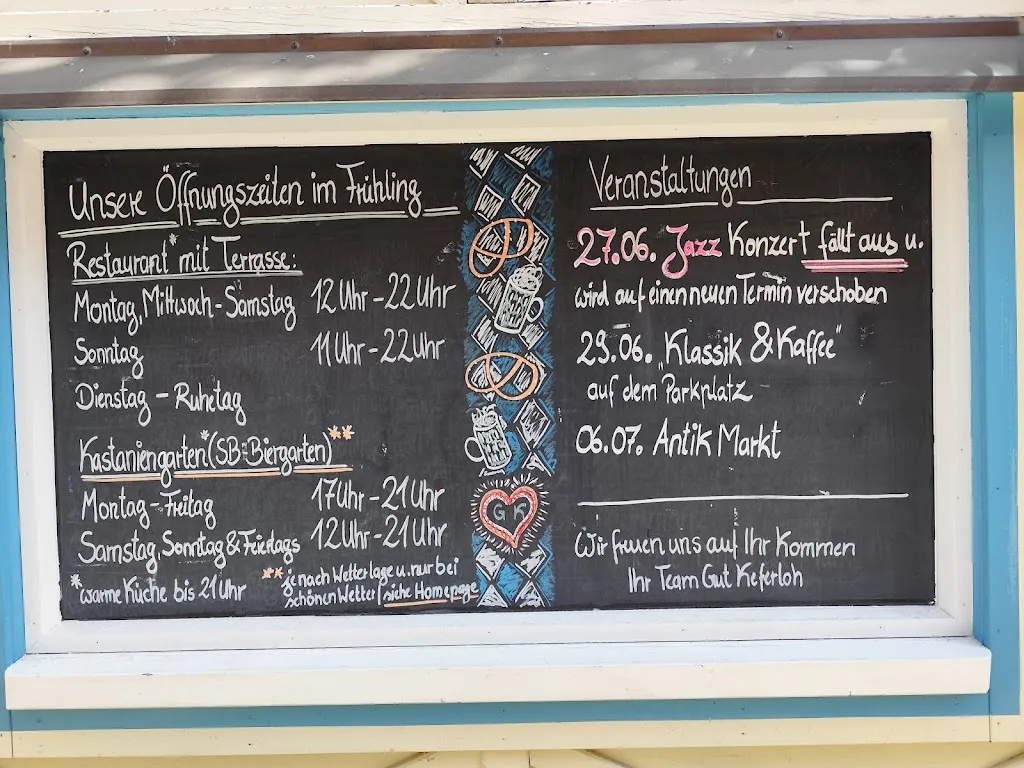 Unsere Öffnungszeiten im Frühling
Restaurant* mit Terrasse:
Montag, Mittwoch-Samstag 12 Uhr - 22 Uhr
Sonntag 11 Uhr - 22 Uhr
Dienstag - Ruhetag
Kastaniengarten* (SB-Biergarten)**
Montag-Freitag 17 Uhr - 21 Uhr
Samstag, Sonntag & Feiertags 12 Uhr - 21 Uhr
*warme Küche bis 21 Uhr
**je nach Wetterlage u. nur bei
schönen Wetter / siehe Homepage
G K
Veranstaltungen
27.06. Jazz Konzert fällt aus u.
wird auf einen neuen Termin verschoben
29.06. "Klassik & Kaffee"
auf dem Parkplatz
06.07. Antik Markt
Wir freuen uns auf Ihr Kommen
Ihr Team Gut Keferloh